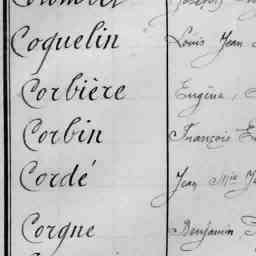 Coquelin Louis Jean
Corbière Eugène
Corbin François
Cordé Jean Mie
Corgne Benjamin